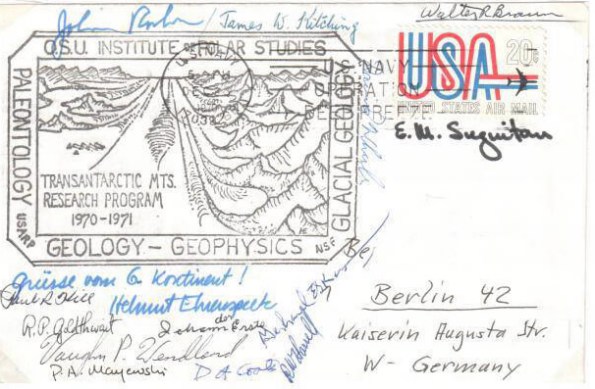 James W. Kitching
Walter R. Braun
O.S.U. INSTITUTE OF POLAR STUDIES
PALEONTOLOGY
USARP
GLACIAL GEOLOGY
NSF
TRANSANTARCTIC MTS.
RESEARCH PROGRAM
1970-1971
GEOLOGY - GEOPHYSICS
U.S. NAVY
U.S. NAVY
OPERATION
DEEP FREEZE
USA
20c
UNITED STATES AIR MAIL
E. M. Suguitan
Grüsse vom 6. Kontinent!
Paul R. Hill
R.P. Goldthwait
Vaughn P. Wendland
P.A. Mayewski
D A Coates
Berlin 42
Kaiserin Augusta Str.
W- Germany